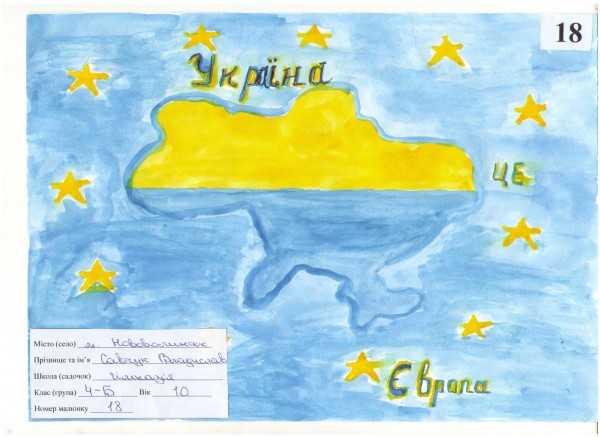 18
Україна
ЦЕ
Європа
Місто (село) м. Нововолинськ
Прізвище та ім'я Савчук Владислав
Школа (садочок) гімназія
Клас (група) 4-Б Вік 10
Номер малюнку 18